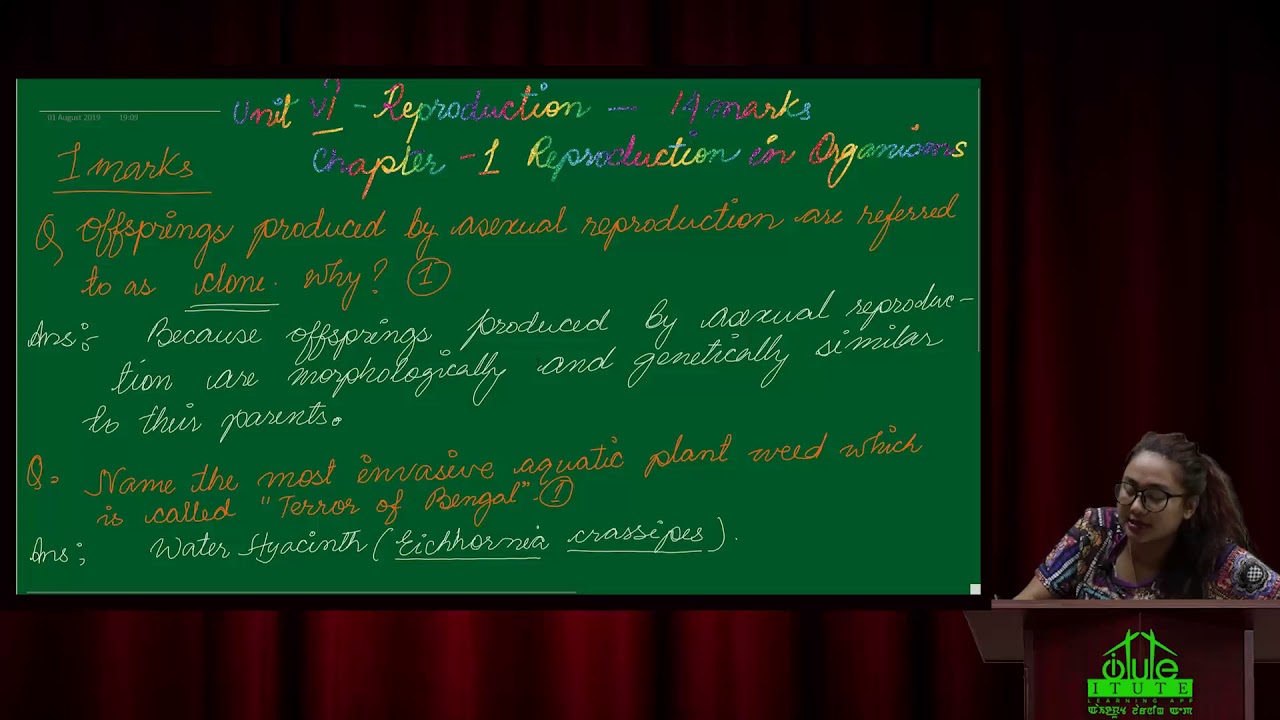 01 August 2019 19:09
Unit VI - Reproduction — 14 marks
Chapter - 1 Reproduction in Organisms
1 marks
Q Offsprings produced by asexual reproduction are referred
to as clone. Why? (1)
Ans:- Because offsprings produced by asexual reproduc-
tion are morphologically and genetically similar
to their parents.
Q. Name the most invasive aquatic plant weed which
is called "Terror of Bengal". (1)
Ans; Water Hyacinth (Eichhornia crassipes).
itute
ITUTE
LEARNING APP